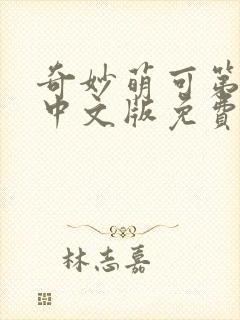 奇妙萌可第
中文版免费
林志嘉